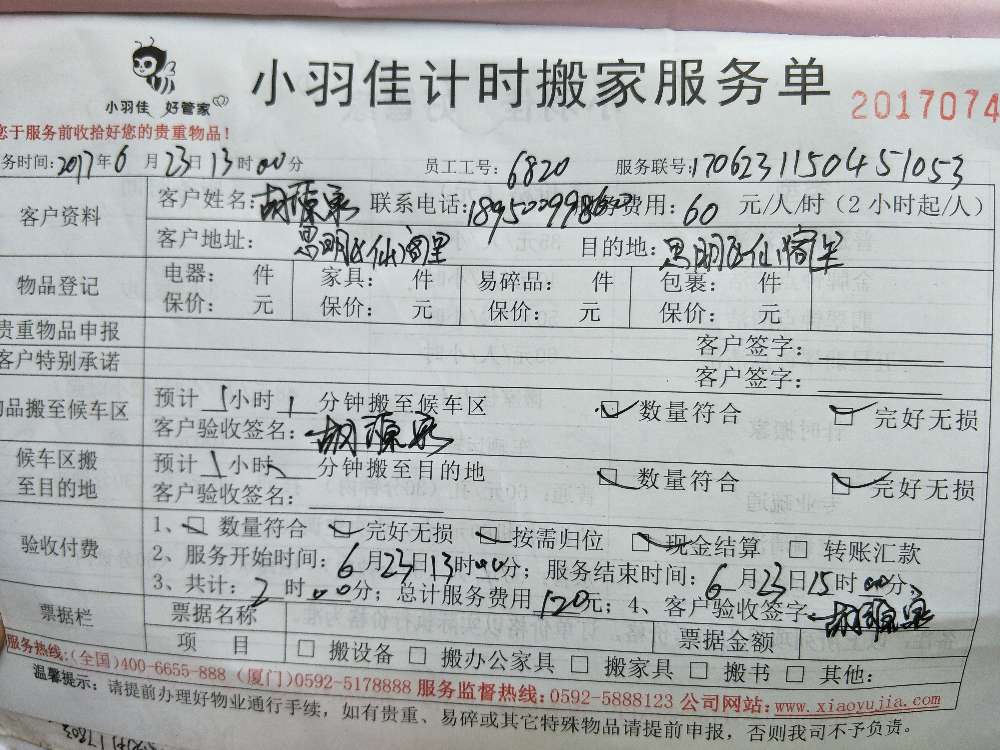 小羽佳 好管家
小羽佳计时搬家服务单
2017074
您于服务前收拾好您的贵重物品！
务时间：2017年6月23日13时00分 员工工号：6820 服务联号：1706231150451053
客户资料 客户姓名：胡源泉 联系电话：18950099860 费用：60 元/人/时（2小时起/人）
客户地址：思明区仙阁里 目的地：思明区仙阁里
物品登记 电器： 件 家具： 件 易碎品： 件 包裹： 件
保价： 元 保价： 元 保价： 元 保价： 元
贵重物品申报 客户签字：
客户特别承诺 客户签字：
物品搬至候车区 预计 1小时 1 分钟搬至候车区 数量符合 完好无损
客户验收签名：胡源泉
候车区搬至目的地 预计 1小时 分钟搬至目的地 数量符合 完好无损
客户验收签名：
验收付费 1、数量符合 完好无损 按需归位 现金结算 转账汇款
2、服务开始时间：6月23日13时00分；服务结束时间：6月23日15时00分；
3、共计：2时00分；总计服务费用120元；4、客户验收签字胡源泉
票据栏 票据名称 票据金额
项 目 搬设备 搬办公家具 搬家具 搬书 其他：
服务热线：(全国)400-6655-888 (厦门)0592-5178888 服务监督热线：0592-5888123 公司网站：www.xiaoyujia.com
温馨提示：请提前办理好物业通行手续，如有贵重、易碎或其它特殊物品请提前申报，否则我司不予负责。